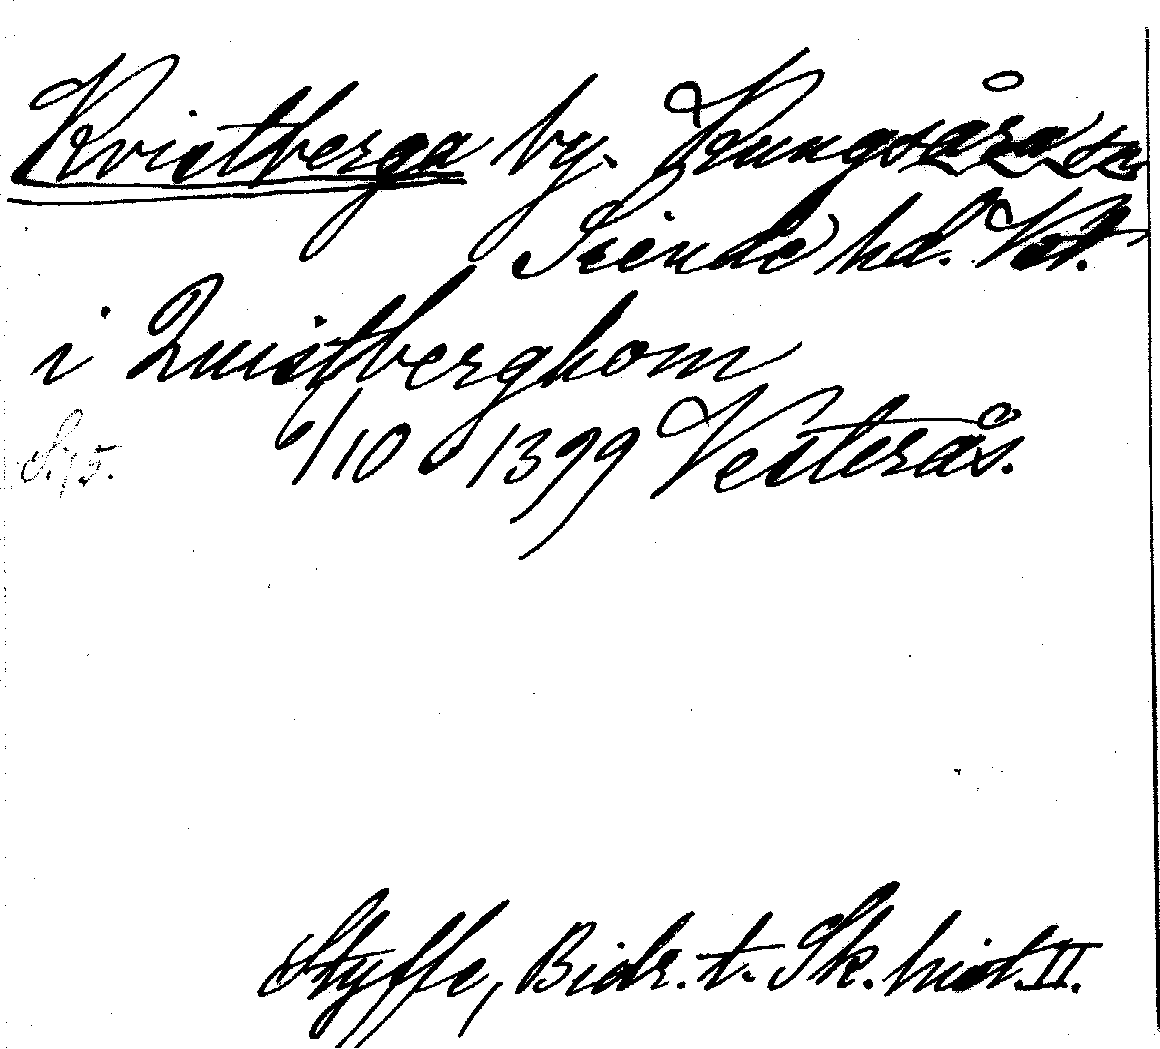 Kvistberga by. Kungsåra sn
Siende hd. Vst.
i Quistberghom
6/10 1399 Vesterås.
Styffe, Bidr. t. Sk. hist. II.